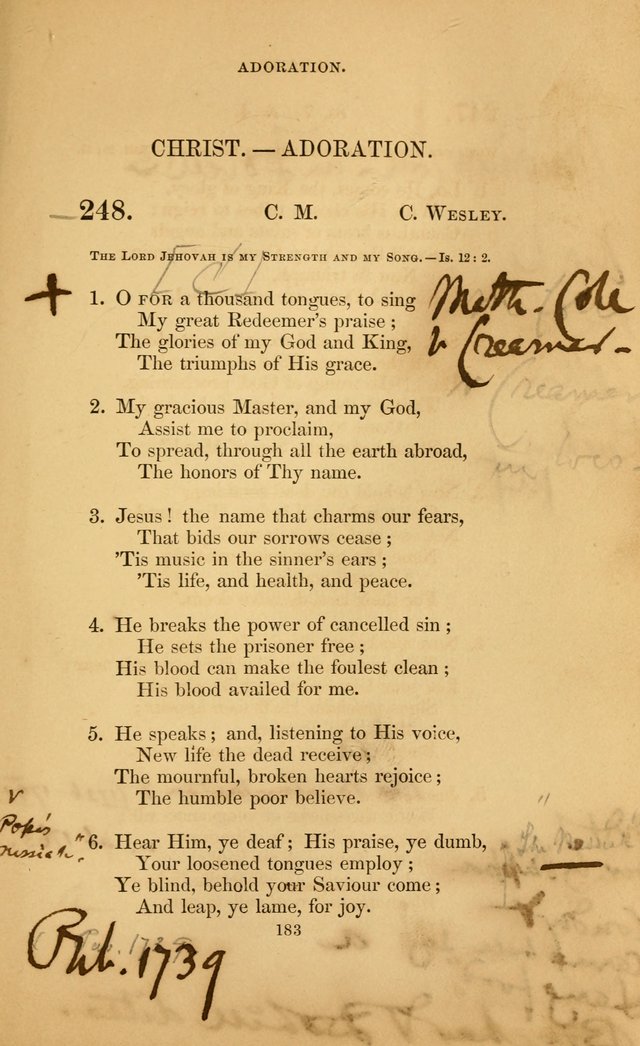 ADORATION.
CHRIST. — ADORATION.
248. C. M. C. WESLEY.
THE LORD JEHOVAH IS MY STRENGTH AND MY SONG. — IS. 12 : 2.
1. O FOR a thousand tongues, to sing
My great Redeemer's praise ;
The glories of my God and King,
The triumphs of His grace.
Meth. Cole
Creamer -
Creamer
in loco -
2. My gracious Master, and my God,
Assist me to proclaim,
To spread, through all the earth abroad,
The honors of Thy name.
3. Jesus ! the name that charms our fears,
That bids our sorrows cease ;
'Tis music in the sinner's ears ;
'Tis life, and health, and peace.
4. He breaks the power of cancelled sin ;
He sets the prisoner free ;
His blood can make the foulest clean ;
His blood availed for me.
5. He speaks ; and, listening to His voice,
New life the dead receive ;
The mournful, broken hearts rejoice ;
The humble poor believe.
V
Pope's
6. Hear Him, ye deaf ; His praise, ye dumb,
Your loosened tongues employ ;
Ye blind, behold your Saviour come ;
And leap, ye lame, for joy.
183
Pub. 1739